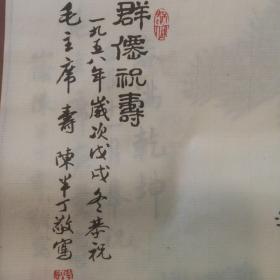 群僊祝壽
一九五八年歲次戊戌冬恭祝
毛主席 壽 陳半丁敬寫